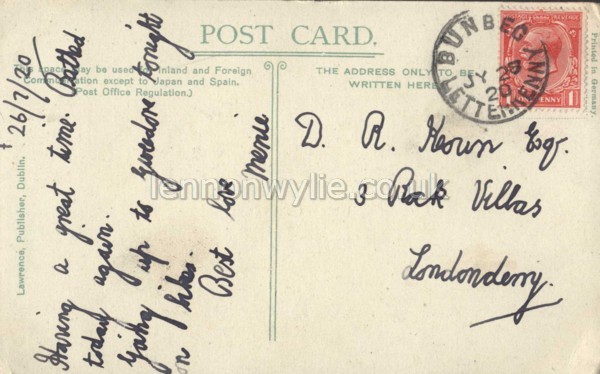 POST CARD.
This space may be used for Inland and Foreign
Communication except to Japan and Spain.
(Post Office Regulation.)
THE ADDRESS ONLY TO BE
WRITTEN HERE.
BUNBEG
LETTERKENNY
JY 26
20
ONE PENNY
Printed in Germany.
Lawrence, Publisher, Dublin.
26/7/20
Having a great time. Bathed
today again.
Going up to Gweedore tonight
on bikes.
Best love
D. R. Esq.
3 Rock Villas
Londonderry.
lennonwylie.co.uk